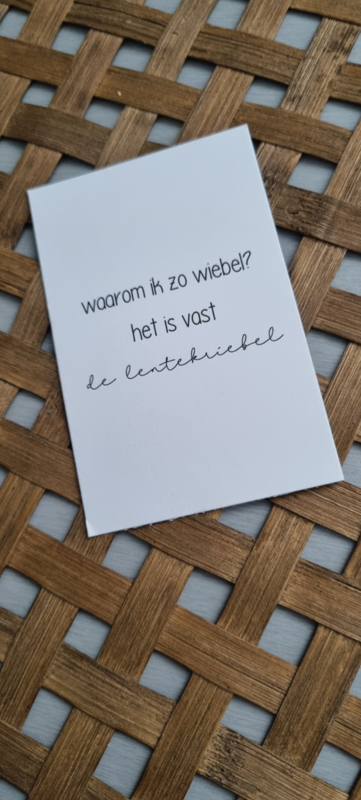 waarom ik zo wiebel?
het is vast
de lentekriebel